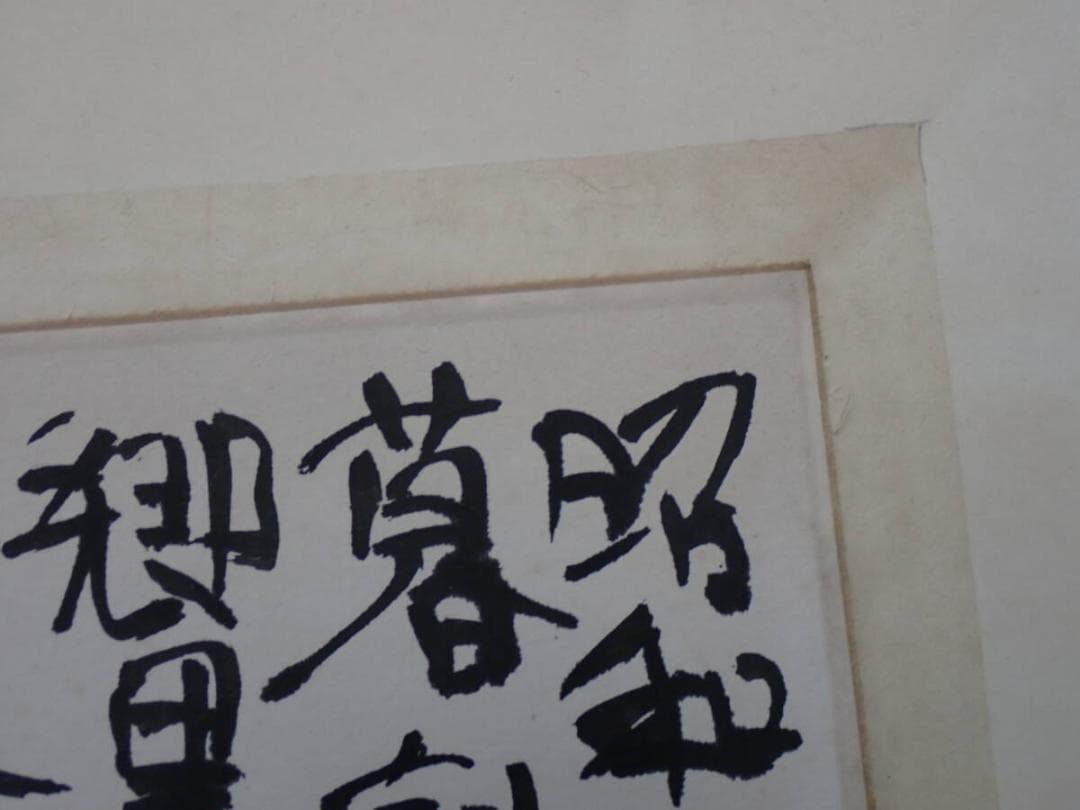 昭和
暮
郷里